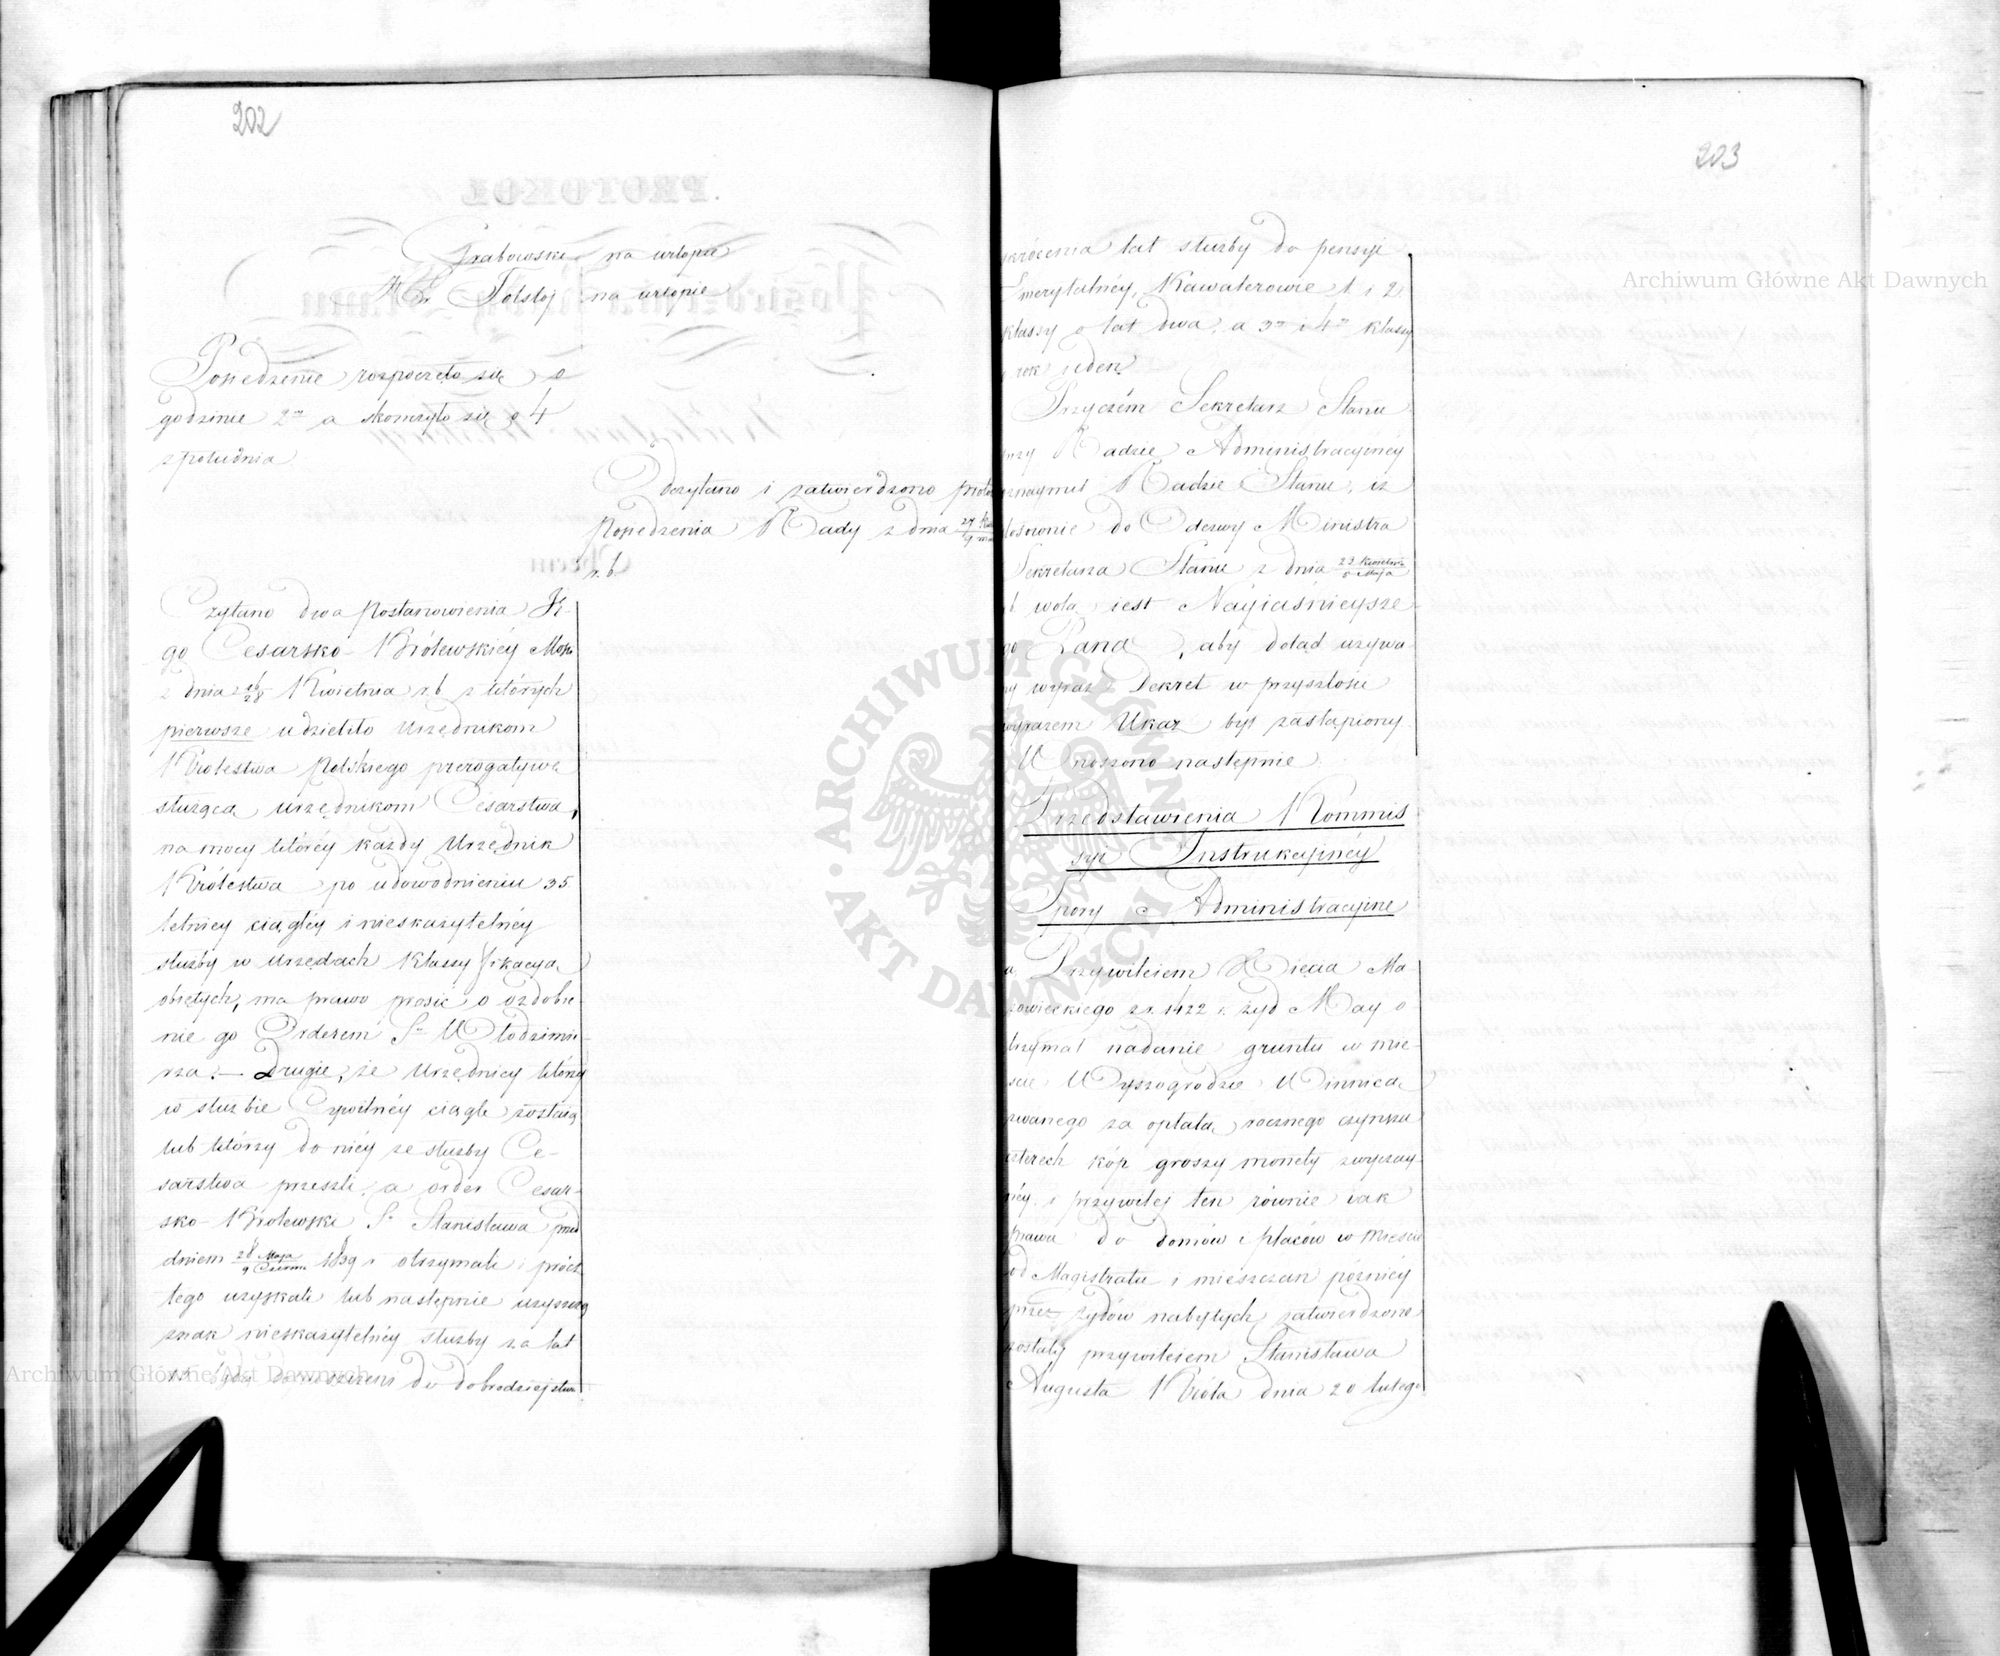 202
Grabowski na urlopie
Hr. Tołstoj na urlopie
Posiedzenie rozpoczęto się o
godzinie 2 a skończyło się o 4
z południa
Odczytano i zatwierdzono proto
Posiedzenia Rady z dnia
r. b.
Czytano dwa Postanowienia Je-
go Cesarsko Królewskiéy Mości
z dnia 16/28 Kwietnia r. b. z których
pierwsze udzieliło Urzędnikom
Królestwa Polskiego prerogatywę
służącą urzędnikom Cesarstwa,
na mocy któréy każdy Urzędnik
Królestwa po udowodnieniu 35
letniey ciągłéy i nieskazytelnéy
służby w Urzędach Klassyfikacyą
obiętych, ma prawo prosić o ozdobie-
nie go Orderem Sgo Włodzimie-
rza. — Drugie, że Urzędnicy którzy
w służbie Cywilnéy ciągle zostaią
lub którzy do niéy ze służby Ce-
sarstwa przeszli, a order Cesar-
sko Królewski Sgo Stanisława przed
dniem 28 Maja/9 Czerwca 1839 r. otrzymali i prócz
tego uzyskali lub następnie uzyszczą
znak nieskazytelnéy służby za lat
do dobrodziejstwa
203
skrócenia lat służby do pensyi
Emerytalnéy, Kawalerowie 1 i 2
klassy o lat dwa, a 3éy i 4éy klassy
o rok ieden
Przyczém Sekretarz Stanu
przy Radzie Administracyinéy
oznaymił Radzie Stanu, iż
stosownie do Odezwy Ministra
Sekretarza Stanu z dnia 23 Kwietnia/5 Maja
r. b. wolą iest Nayiaśnieysze-
go Pana, aby dotąd używa-
ny wyraz Dekret w przyszłości
wyrazem Ukaz był zastąpiony.
Wnoszono następnie
Przedstawienia Kommis
syi Instrukcyinéy
Spory Administracyine
a, Przywileiem Xięcia Ma-
zowieckiego z r. 1422 r. żyd May o-
trzymał nadanie gruntu w mie-
ście Wyszogrodzie Winnica
zwanego za opłatą rocznego czynszu
czterech kóp groszy monety zwyczay-
néy, i przywiléj ten równie iak
prawa do domów i placów w mieście
od Magistratu i mieszczan późniéy
przez żydów nabytych, zatwierdzone
zostały przywileiem Stanisława
Augusta Króla dnia 20 lutego
Archiwum Główne Akt Dawnych
Archiwum Główne Akt Dawnych
ARCHIWUM GŁÓWNE AKT DAWNYCH